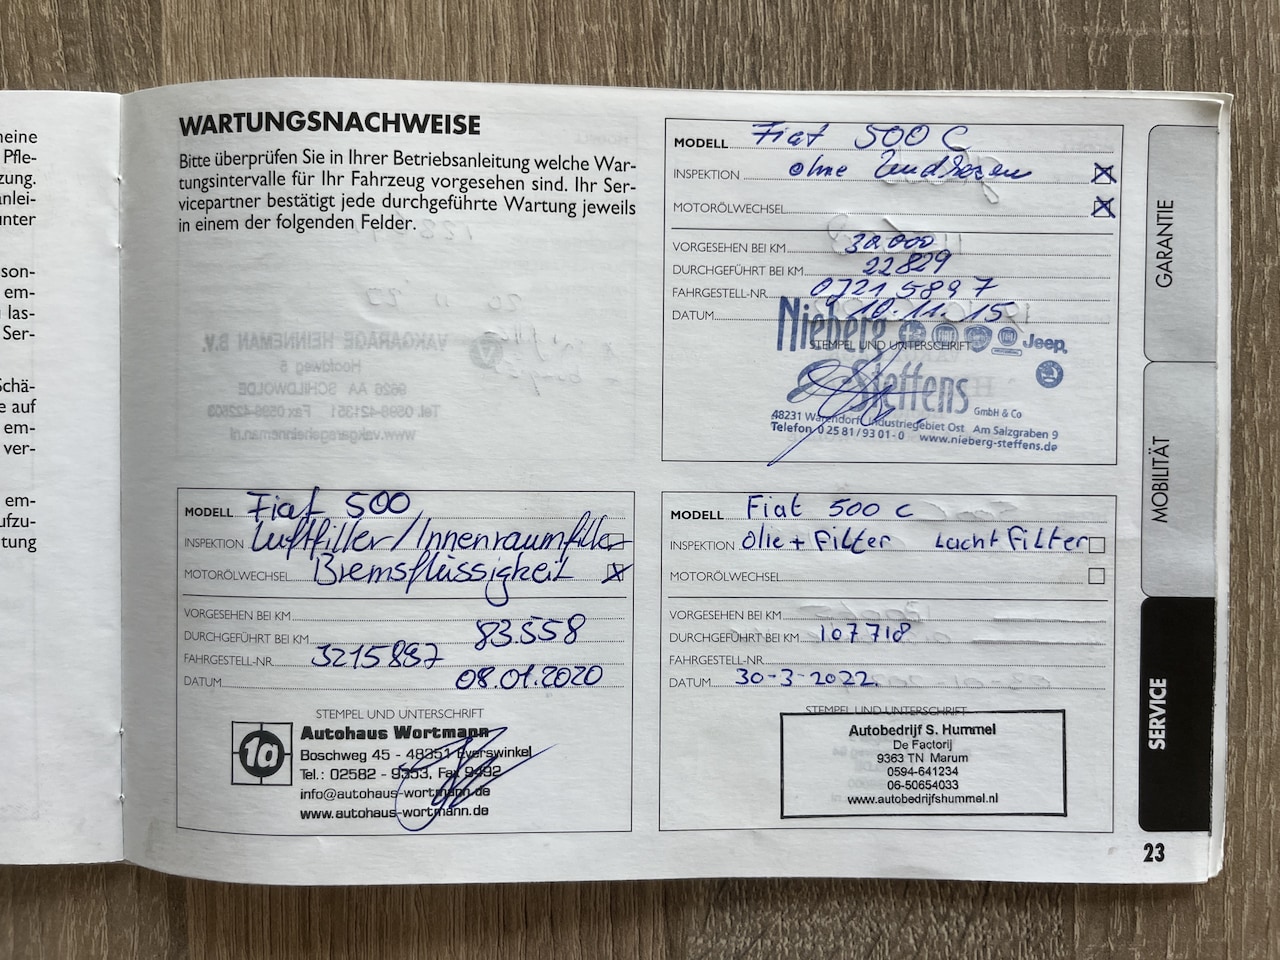 heine
Pfle-
zung.
nlei-
unter
son-
em-
las-
Ser-
Schä-
e auf
em-
ver-
em-
ufzu-
tung
WARTUNGSNACHWEISE
Bitte überprüfen Sie in Ihrer Betriebsanleitung welche War-
tungsintervalle für Ihr Fahrzeug vorgesehen sind. Ihr Ser-
vicepartner bestätigt jede durchgeführte Wartung jeweils
in einem der folgenden Felder.
MODELL Fiat 500 C
INSPEKTION ohne Zündkerzen
MOTORÖLWECHSEL
VORGESEHEN BEI KM 30.000
DURCHGEFÜHRT BEI KM 22829
FAHRGESTELL-NR. 0J215897
DATUM 10.11.15
STEMPEL UND UNTERSCHRIFT
Nieberg
Jeep
Steffens
GmbH & Co
48231 Warendorf, Industriegebiet Ost Am Salzgraben 9
Telefon 0 25 81 / 93 01 - 0 www.nieberg-steffens.de
MODELL Fiat 500
INSPEKTION Luftfilter/Innenraumfilter
MOTORÖLWECHSEL Bremsflüssigkeit
VORGESEHEN BEI KM
DURCHGEFÜHRT BEI KM 83.558
FAHRGESTELL-NR. 3215887
DATUM 08.01.2020
STEMPEL UND UNTERSCHRIFT
1a
Autohaus Wortmann
Boschweg 45 - 48351 Everswinkel
Tel.: 02582 - 9353, Fax 9492
info@autohaus-wortmann.de
www.autohaus-wortmann.de
MODELL Fiat 500 c
INSPEKTION Olie + Filter Lachtfilter
MOTORÖLWECHSEL
VORGESEHEN BEI KM
DURCHGEFÜHRT BEI KM 107718
FAHRGESTELL-NR.
DATUM 30-3-2022.
STEMPEL UND UNTERSCHRIFT
Autobedrijf S. Hummel
De Factorij
9363 TN Marum
0594-641234
06-50654033
www.autobedrijfshummel.nl
GARANTIE
MOBILITÄT
SERVICE
23